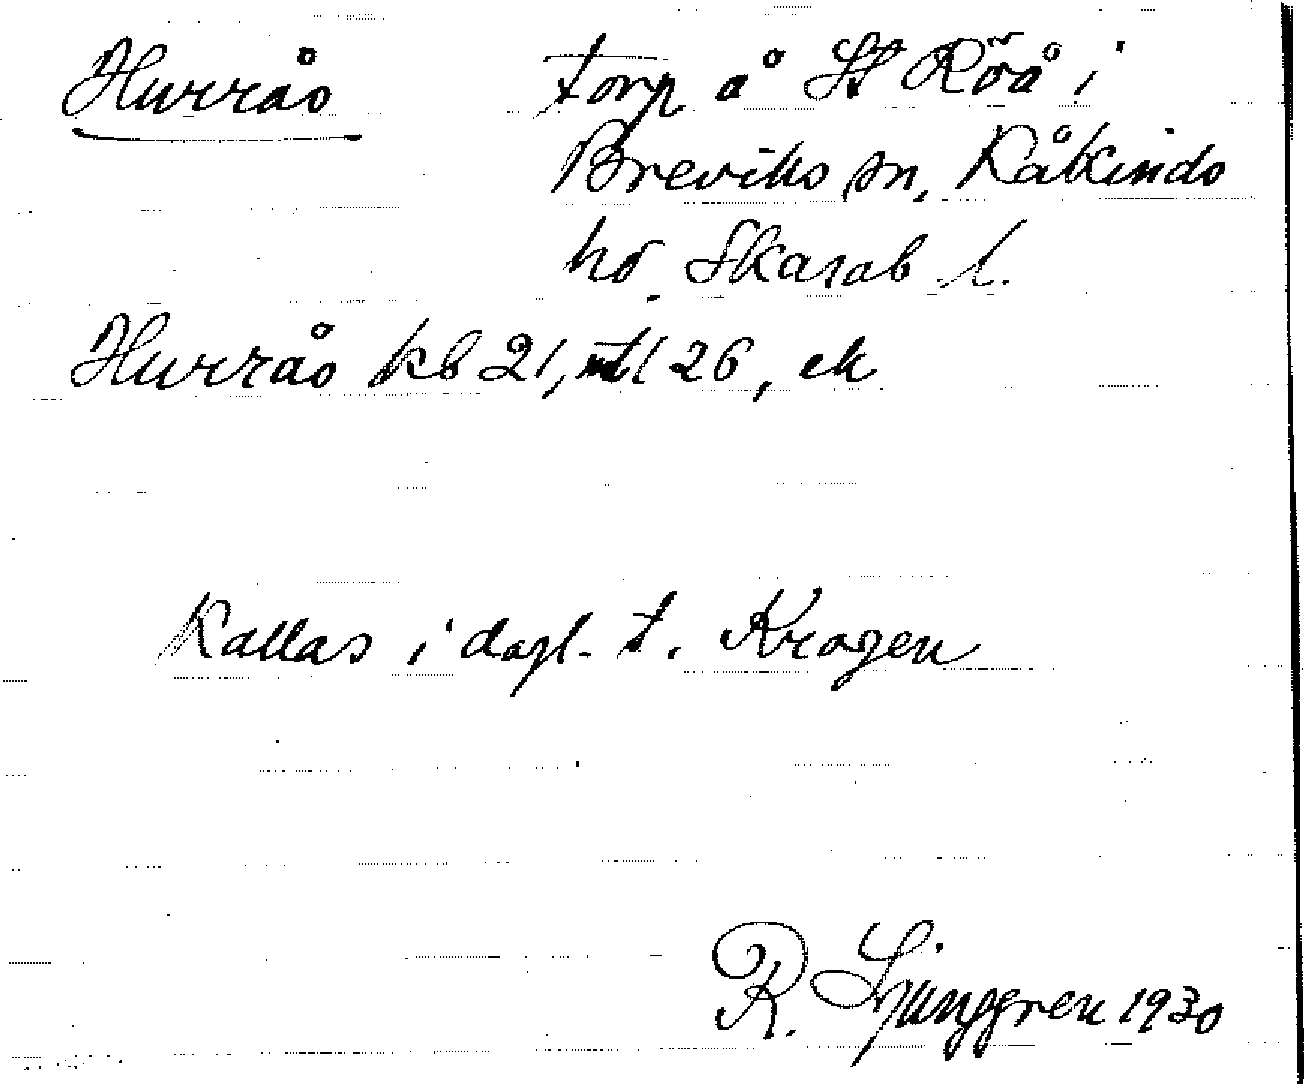 Hurrås torp å St Röå i
Breviks sn, Kåkinds
hd, Skarab l.
Hurrås kb 21, mtl 26, ek
Kallas i dagl. t. Kragen
R. Ljunggren 1930